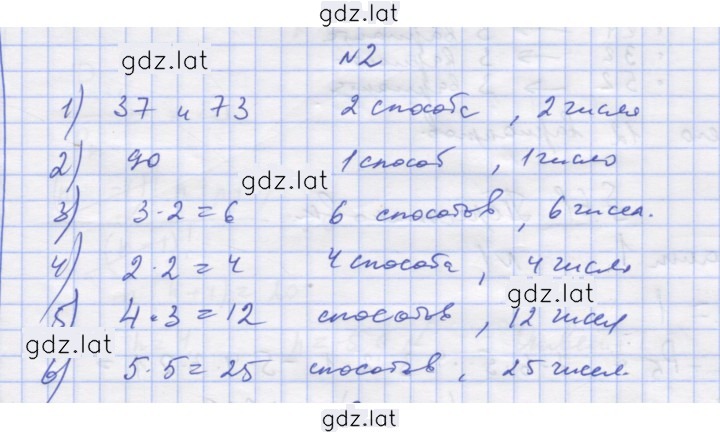 gdz.lat
gdz.lat
№2
1) 37 и 73 2 способа, 2 числа
2) 90 1 способ, 1 число
gdz.lat
3) 3·2=6 6 способов, 6 чисел.
4) 2·2=4 4 способа, 4 числа
gdz.lat
5) 4·3=12 способов, 12 чисел
gdz.lat
6) 5·5=25 способов, 25 чисел.
gdz.lat